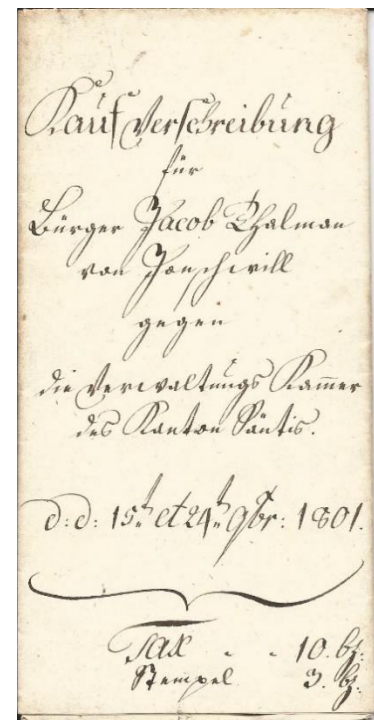 Kauf Verschreibung
für
Bürger Jacob Thalman
von Jonschwill
gegen
die Verwaltungs Kam̅er
des Kanton Säntis.
d: d: 15ᵗ et 24ᵗ 9br: 1801.
Tax - - 10. bz.
Stempel 3. bz.